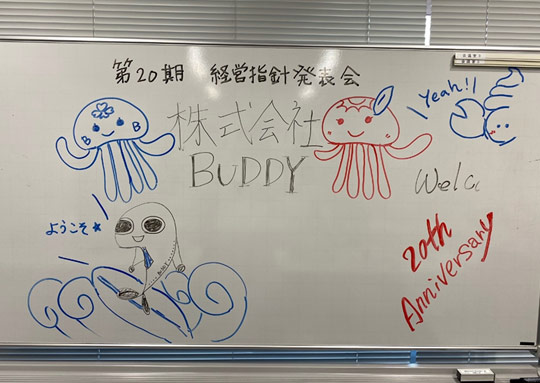 第20期 経営指針発表会
株式会社
BUDDY
Yeah!!
B B
Welc
ようこそ★
20th
Anniversary